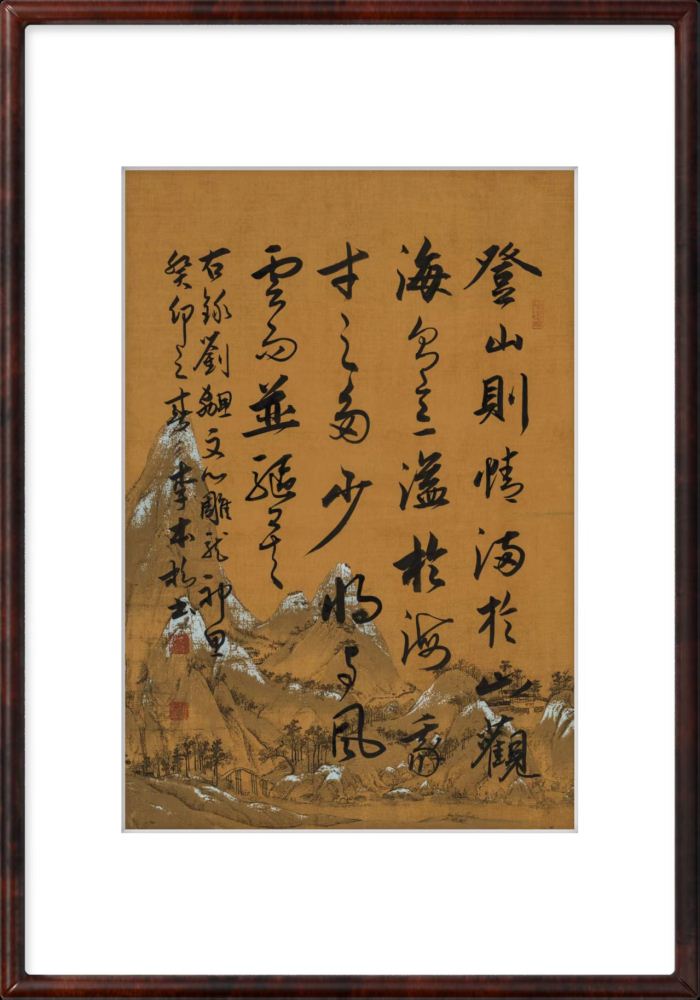 登山則情滿於山觀
海則意溢於海我
才之多少將与風
雲而並驅矣
右錄劉勰文心雕龍神思
癸卯之春李本書